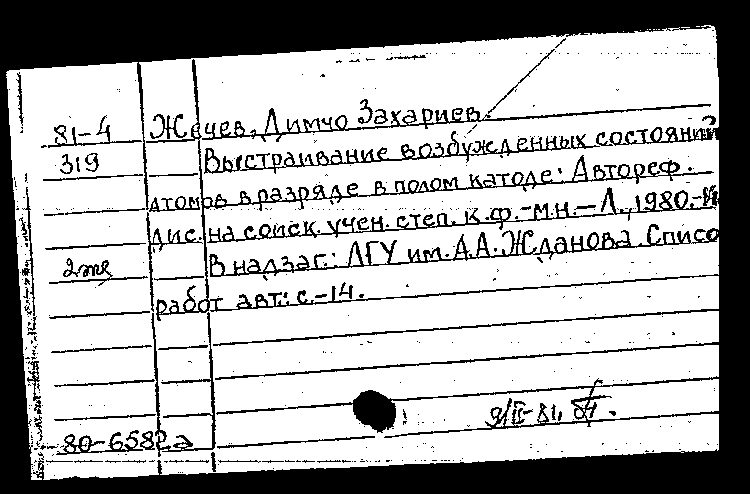 81-4 Жечев, Димчо Захариев.
319 Выстраивание возбужденных состояний
атомов в разряде в полом катоде: Автореф.
дис. на соиск. учен. степ. к.ф.-м.н. – Л., 1980.-
2 экз В надзаг.: ЛГУ им. А.А. Жданова. Списо
работ авт.: с.-14.
9/II-81.
80-6582а